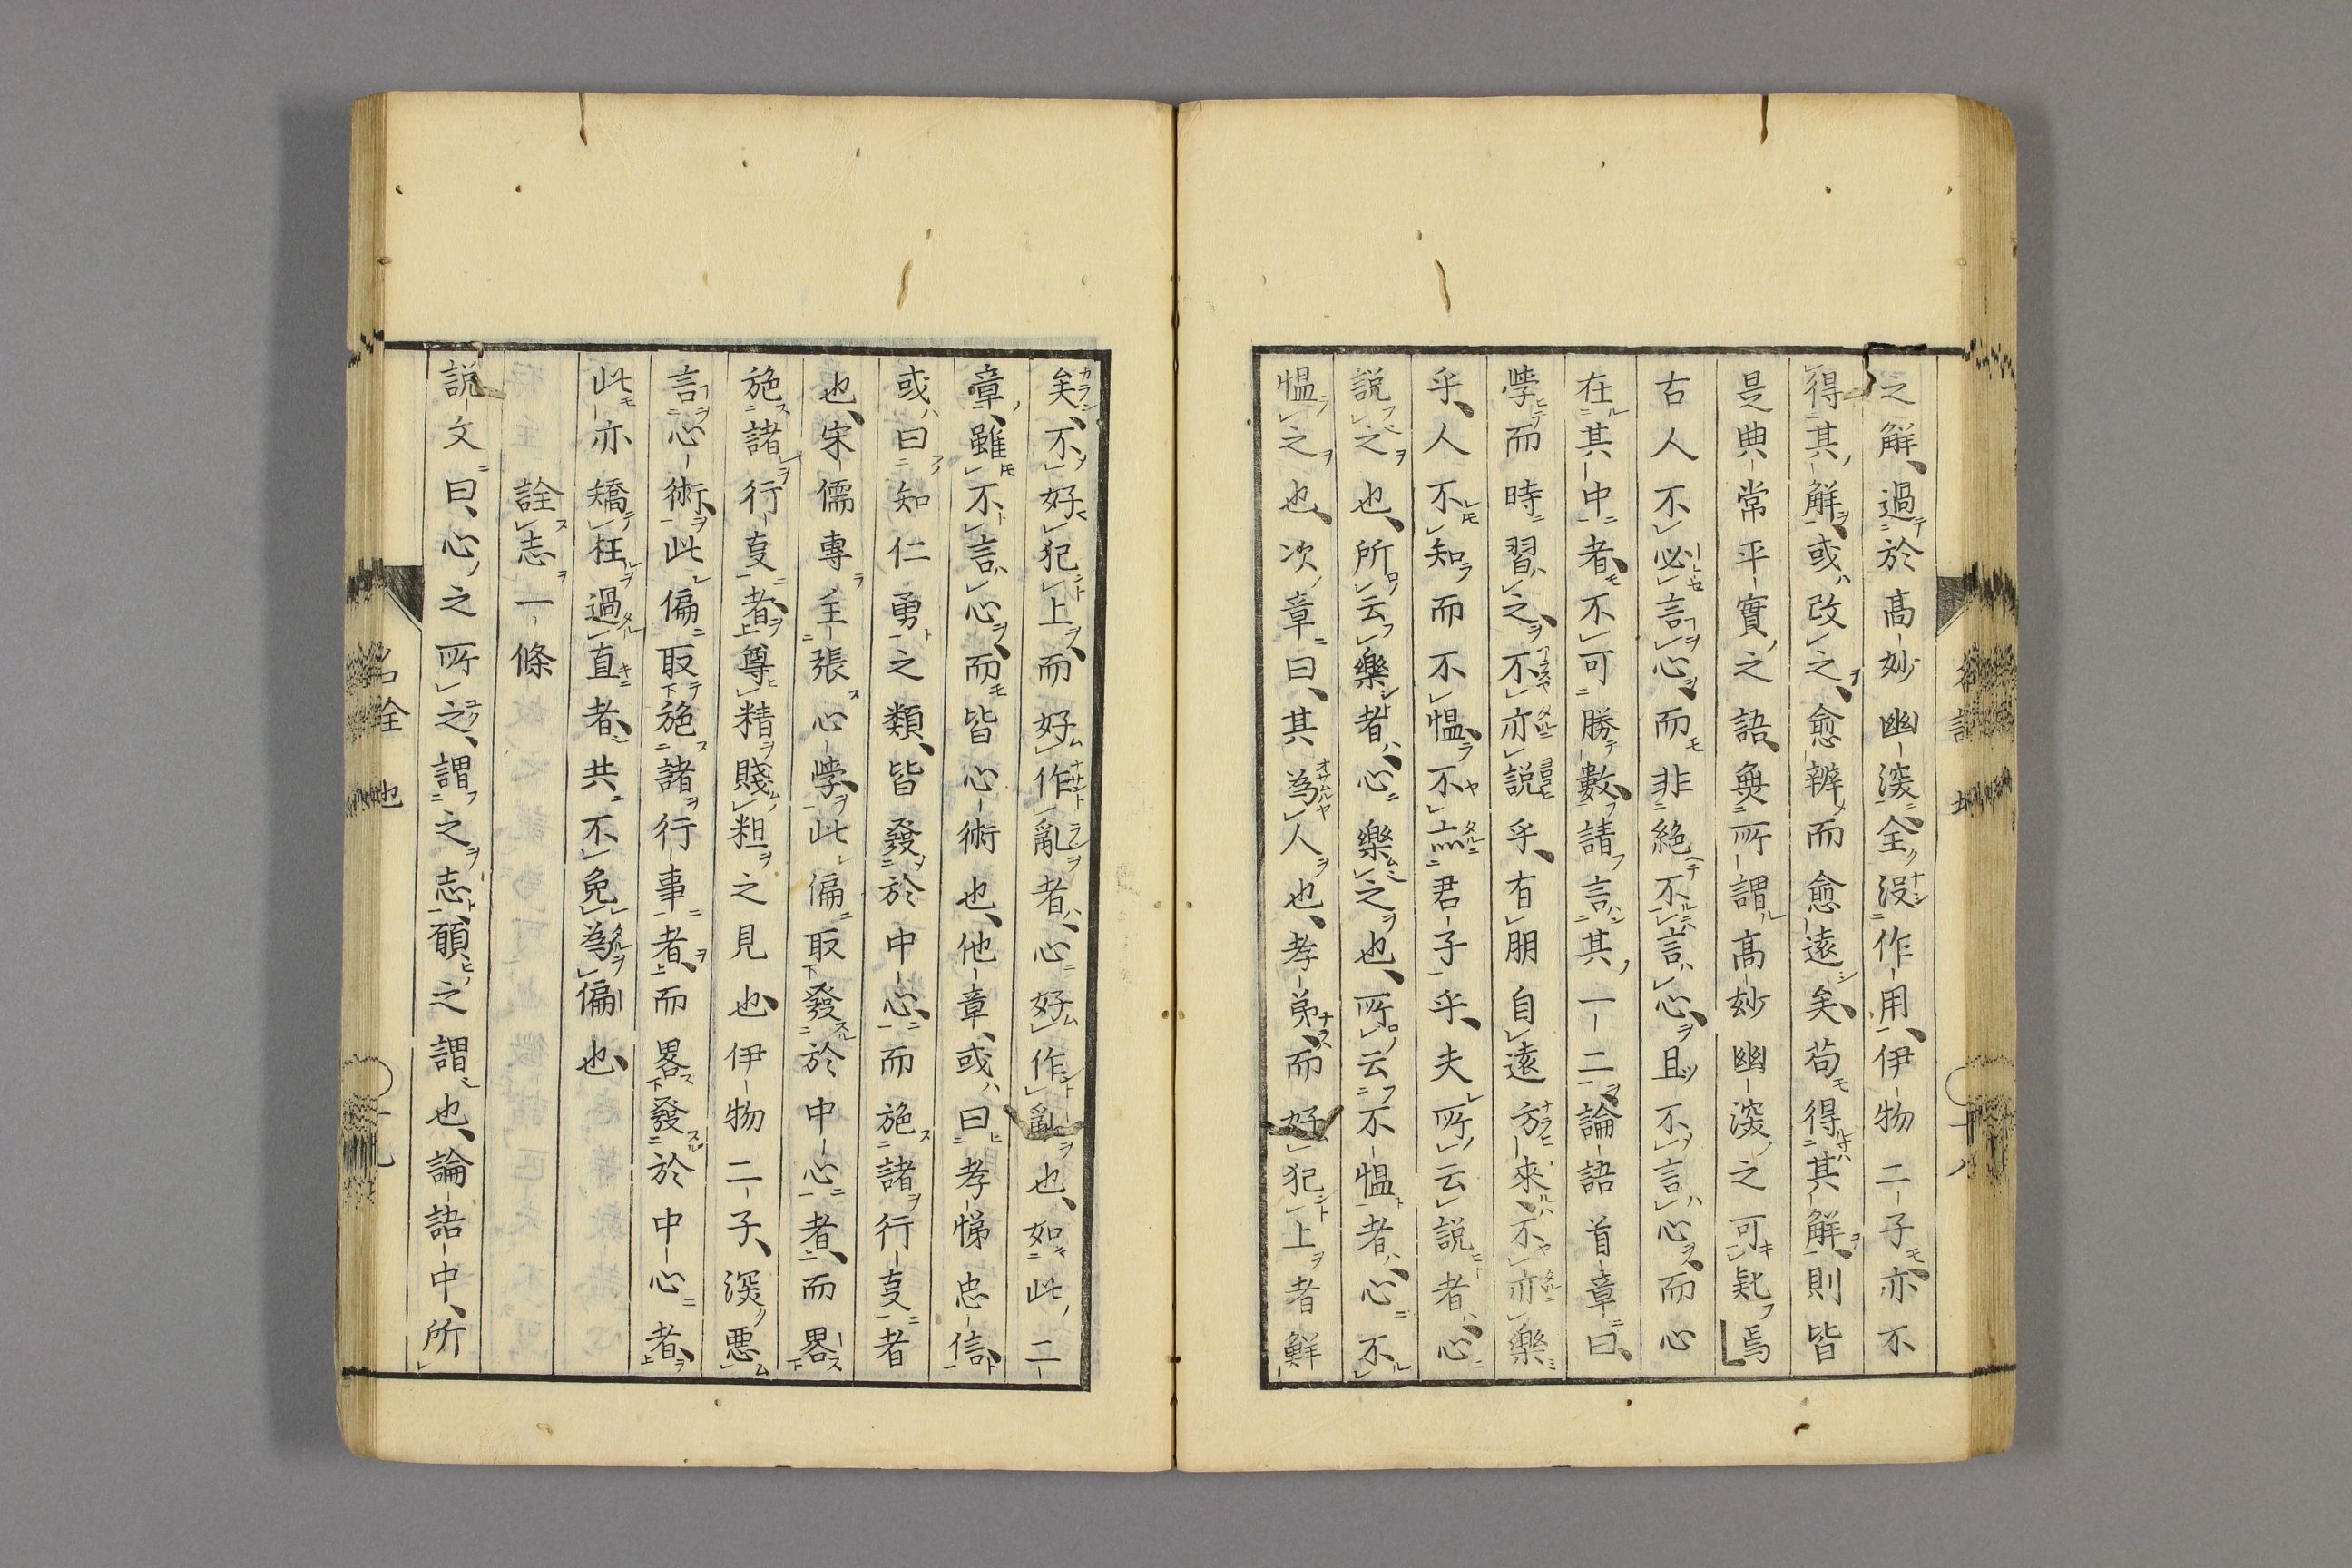 之解、過於高妙幽深、全没作用、伊物二子亦不
得其解、或改之、愈辨而愈遠矣、苟得其解、則皆
是典常平實之語、與所謂高妙幽深之可𣣔焉
古人不必言心、而非絶不言心、且不言心而心
在其中者、不可勝數、請言其一二、論語首章曰、
學而時習之、不亦説乎、有朋自遠方來、不亦樂
乎、人不知而不慍、不亦君子乎、夫所云説者、心
説之也、所云樂者、心樂之也、所云不慍者、心不
慍之也、次章曰、其為人也、孝弟、而好犯上者鮮
矣、不好犯上、而好作亂者、心好作亂也、如此二
章、雖不言心、而皆心術也、他章、或曰孝悌忠信、
或曰知仁勇之類、皆發於中心、而施諸行事者
也、宋儒專主張心學、此偏取發於中心者、而畧
施諸行事者、尊精賤粗之見也、伊物二子、深惡
言心術、此偏取施諸行事者、而畧發於中心者、
此亦矯枉過直者、共不免為偏也、
詮志一條
説文曰、心之所之、謂之志、願之謂也、論語中、所